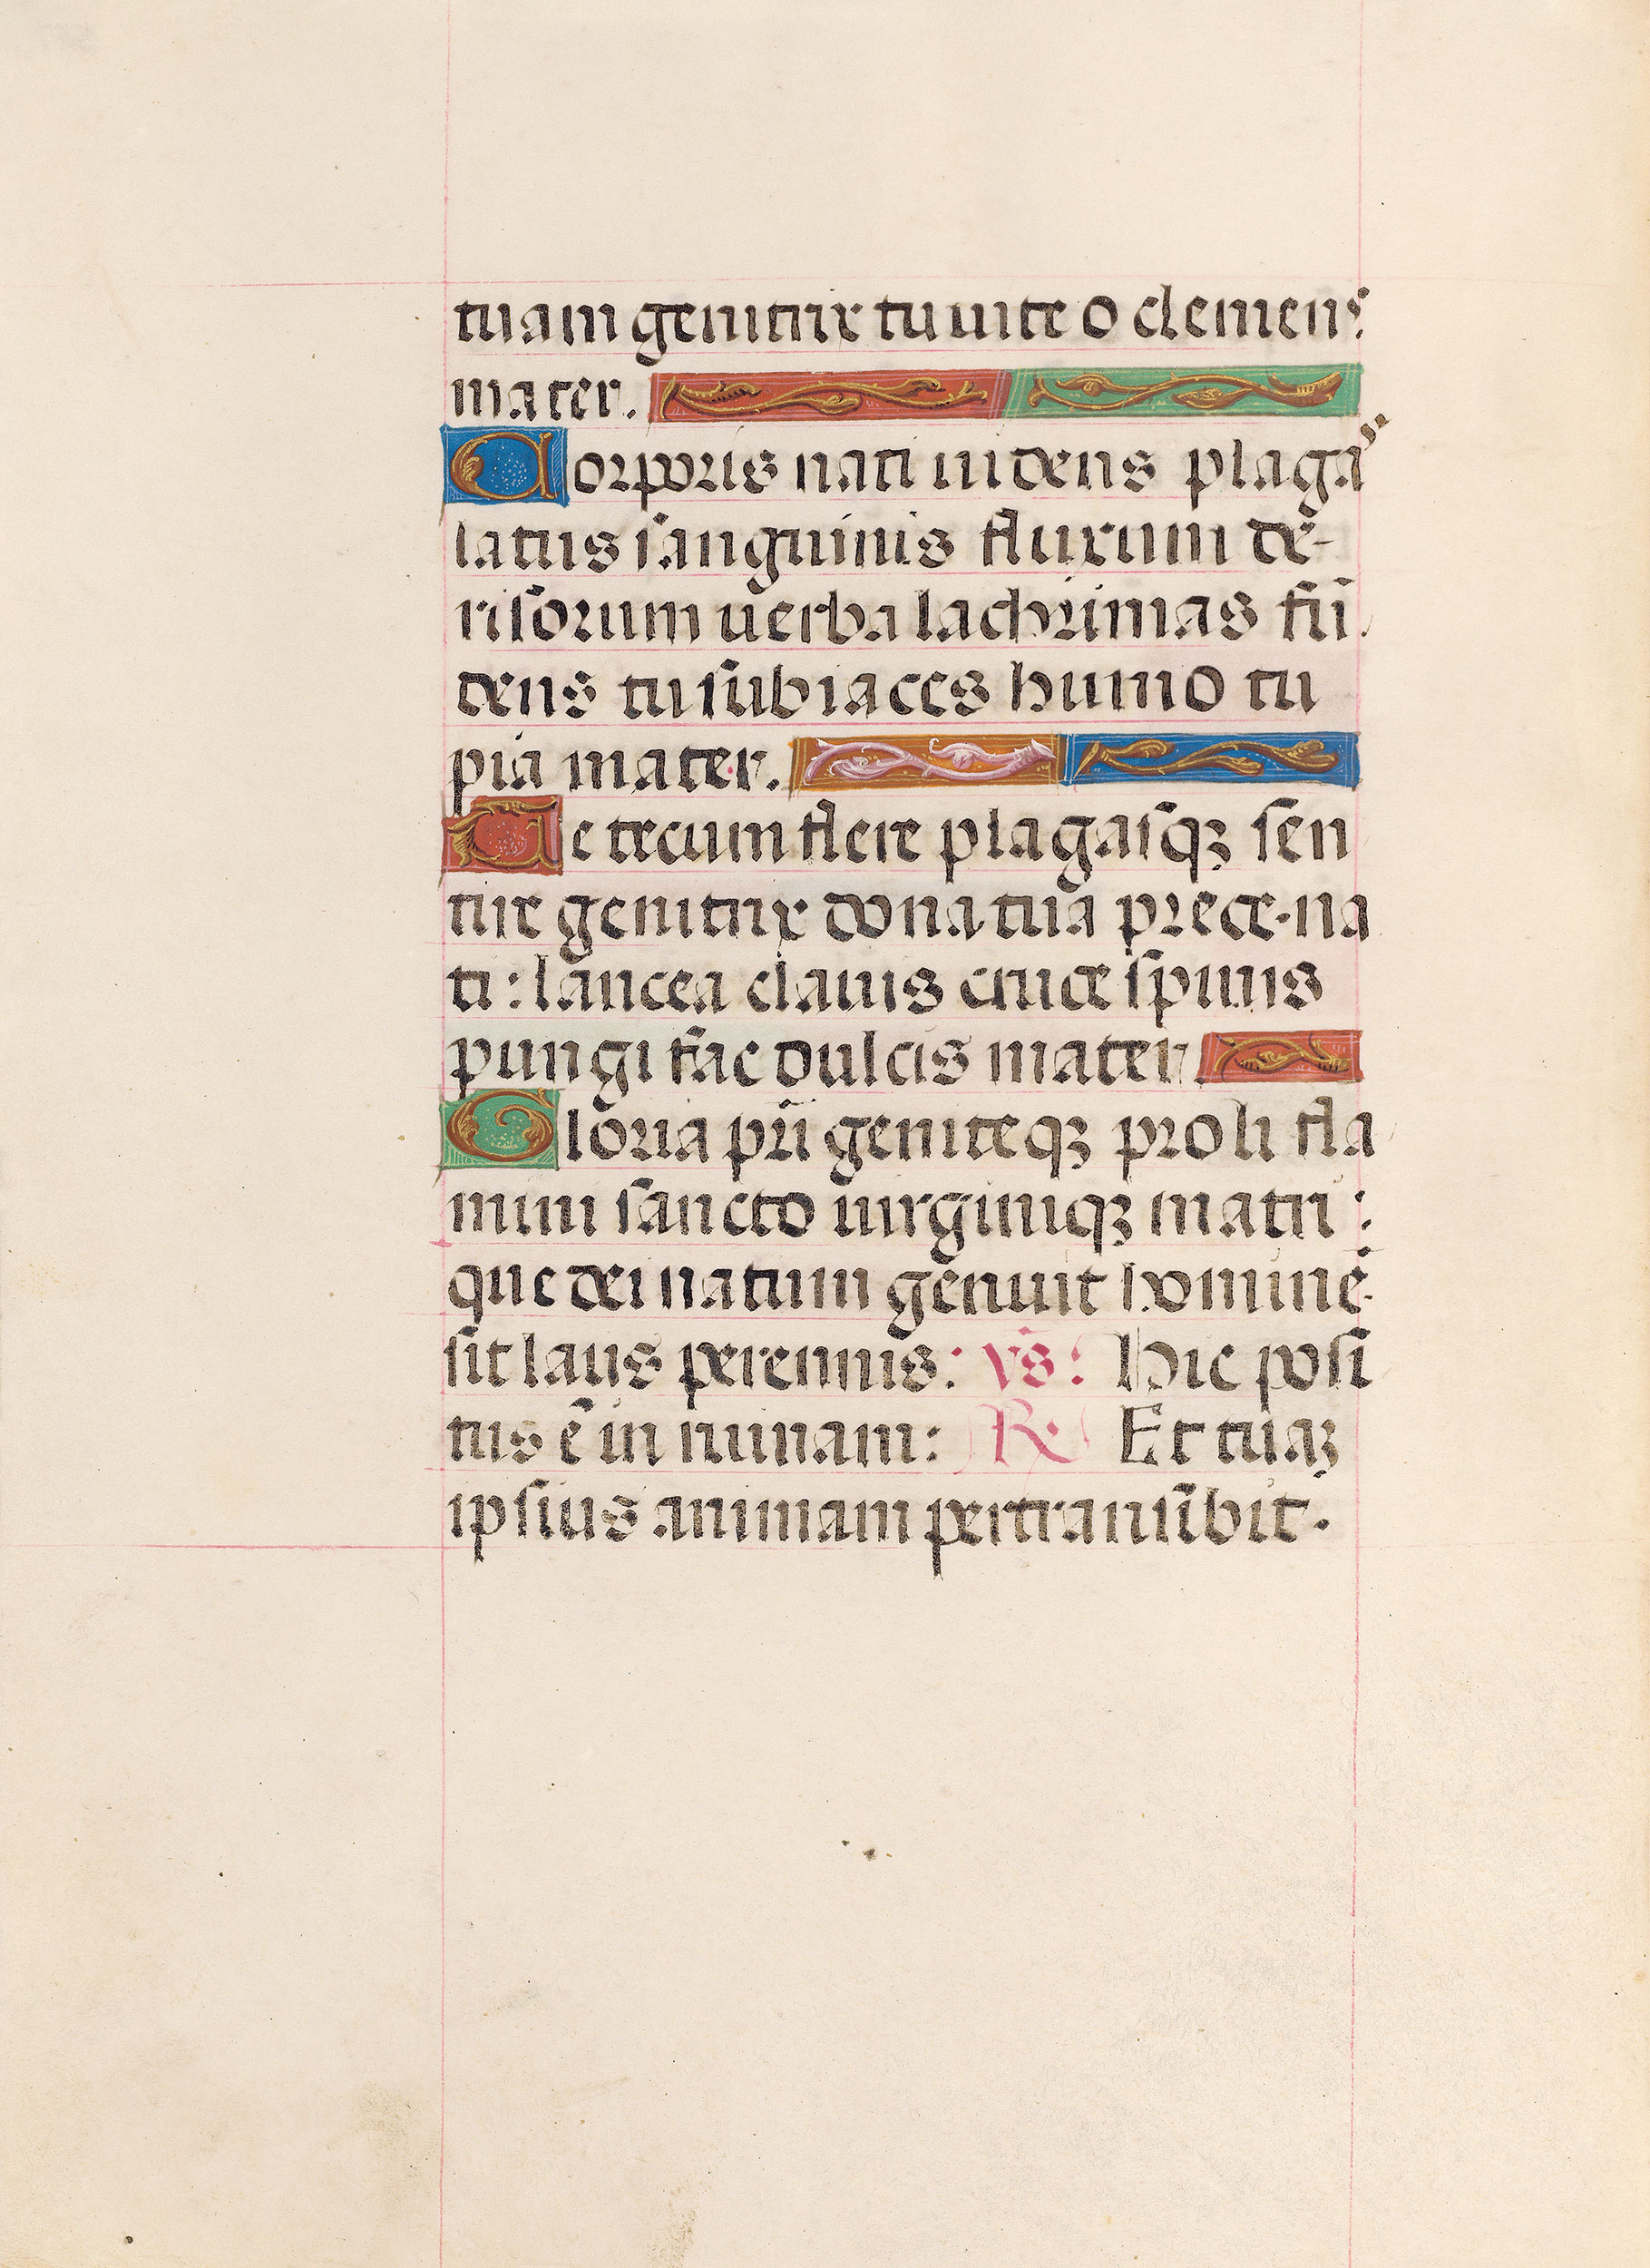 tuam genitrix tu vite o clemens
mater.
Corporis nati videns plagas
latus sanguinis fluxum de-
risorum verba lachrimas fun
dens tu subiaces humo tu
pia mater.
Me tecum flere plagasqꝫ sen
tire genitrix dona tua prece na
ti: lancea clavis cruce spinis
pungi fac dulcis mater.
Gloria pr̄i geniteqꝫ proli fla
mini sancto virginiqꝫ matri:
que dei natum genuit hominē
sit laus perennis: v̄s: Hic posi
tus ē in ruinam: R. Et tuaꝫ
ipsius animam pertransibit.